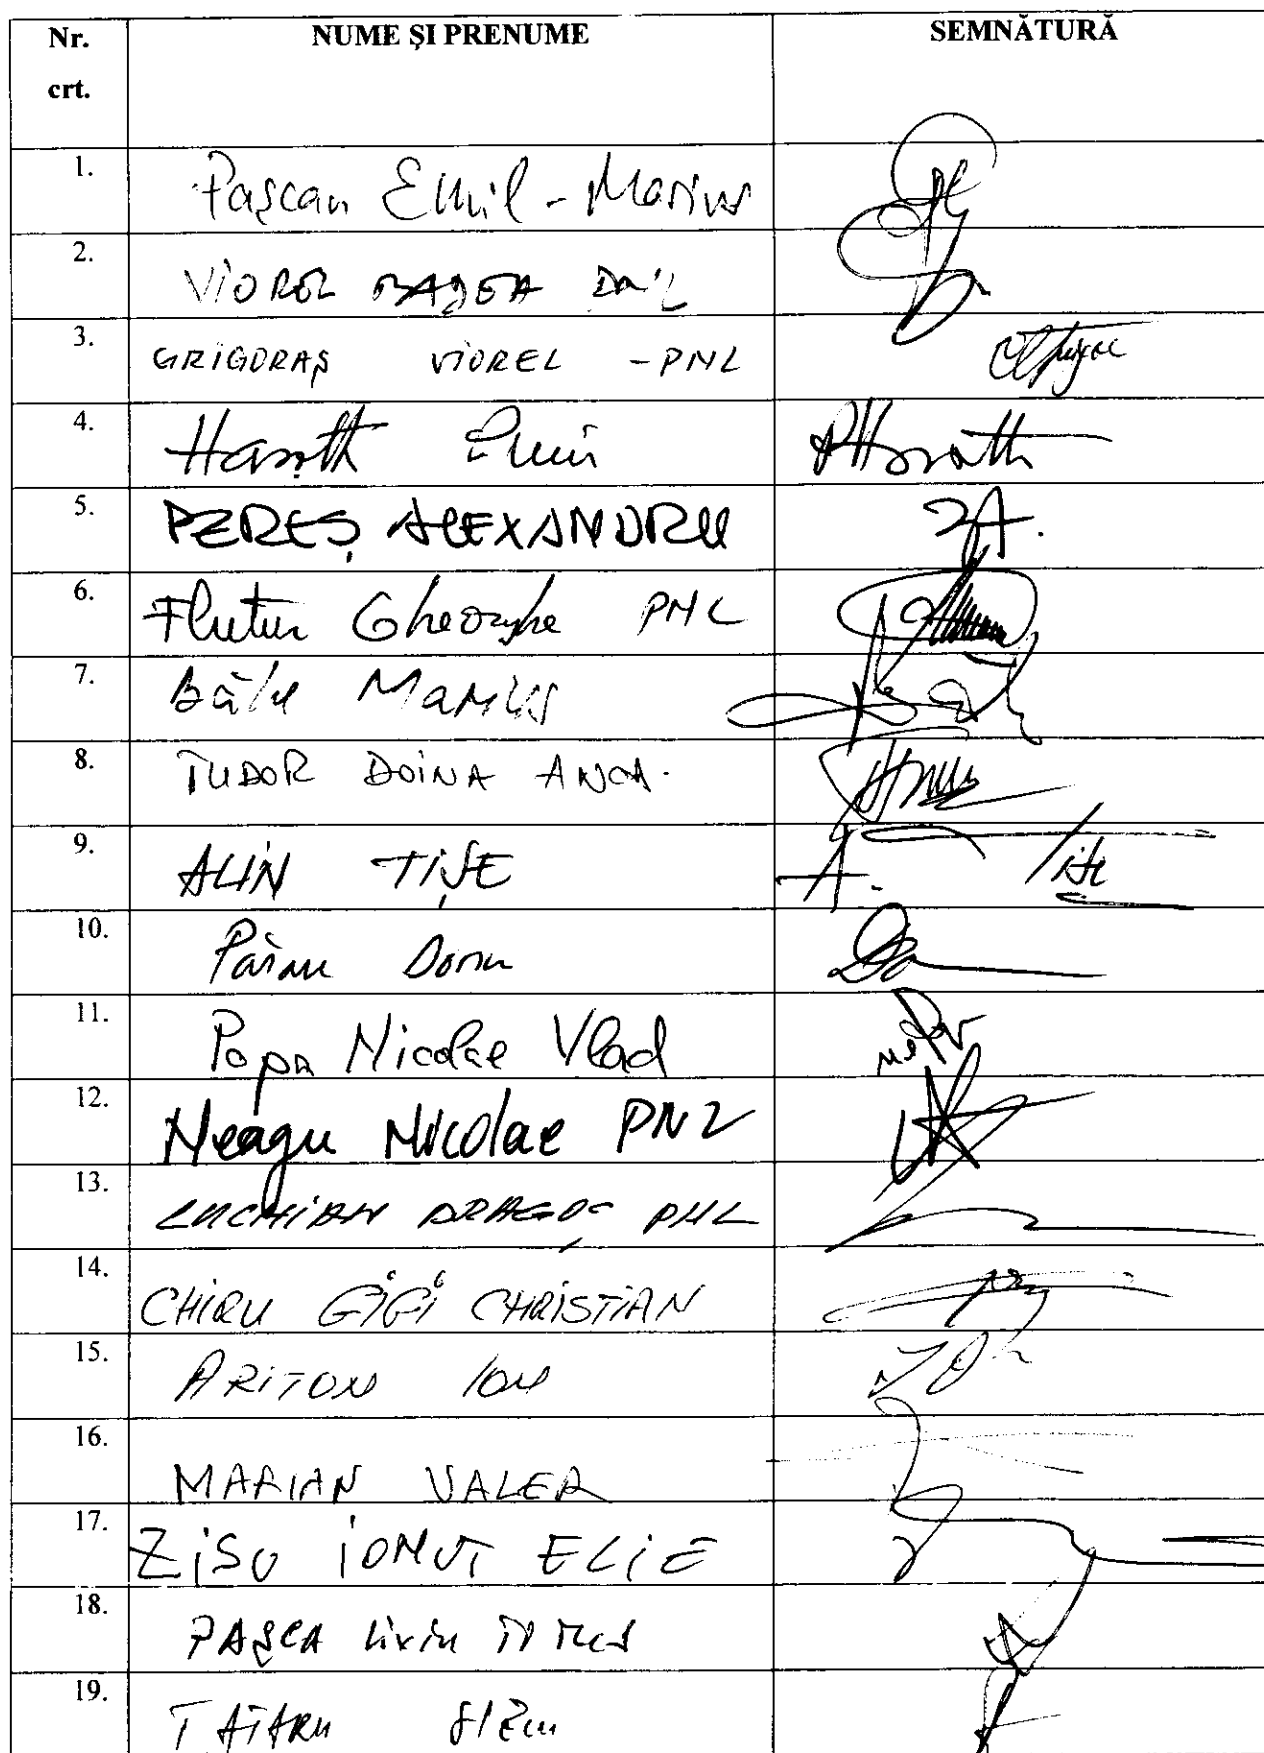 Nr. crt. NUME ŞI PRENUME SEMNĂTURĂ
1. Paşcan Emil - Marius
2. VIOREL BADEA
3. GRIGORAŞ VIOREL - PNL
4. Horvath
5. PEREŞ ALEXANDRU
6. Flutur Gheorghe PNL
7. Bâlu Marius
8. TUDOR DOINA ANCA.
9. ALIN TIŞE A. Tişe
10. Păran Dorin
11. Popa Nicolae Vlad
12. Neagu Nicolae PNL
13. LUCHIAN DRAGOŞ PNL
14. CHIRU GIGI CHRISTIAN
15. ARITON ION
16. MARIAN VALER
17. ZISU IONUŢ ELIE
18. PAŞCA Liviu TITUS
19. TĂTARU